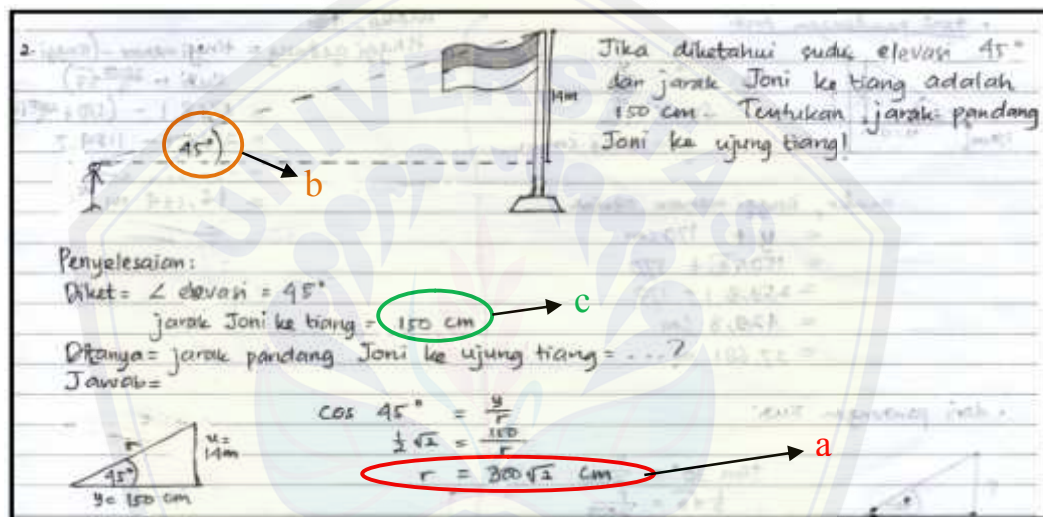 2.
14m
45°
b
Jika diketahui sudut elevasi 45°
dan jarak Joni ke tiang adalah
150 cm. Tentukan jarak pandang
Joni ke ujung tiang!
UNIVERSITAS
Penyelesaian:
Diket = ∠ elevasi = 45°
jarak Joni ke tiang = 150 cm
c
Ditanya = jarak pandang Joni ke ujung tiang = ...?
Jawab =
cos 45° = y/r
½√2 = 150/r
r = 300√2 cm
a
r
45°
y = 150 cm
u =
14m